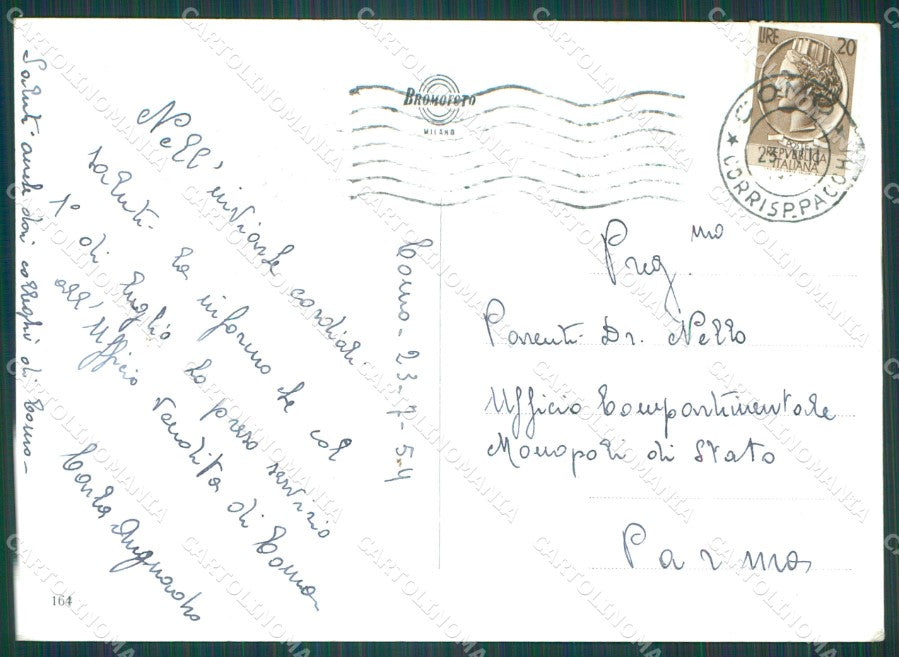 BROMOFOTO
MILANO
LIRE 20
REPVBBLICA
ITALIANA
COMO
CORRISP. PACCHI
Nell'inviarle cordiali
saluti La informo che col
1° di luglio ho preso servizio
all'Ufficio Vendita di Como
Carla
Saluti anche dai colleghi di Como -
Como - 23-7-54
Preg.mo
Parenti Dr. Nello
Ufficio Compartimentale
Monopoli di Stato
Parma
164
CARTOLINOMANIA